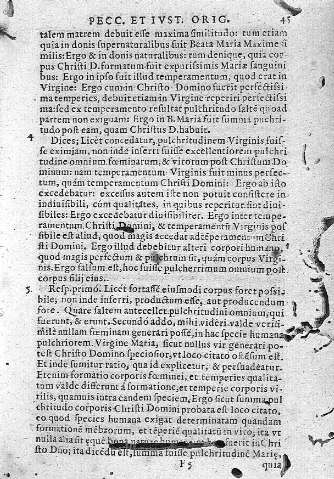 PECC. ET IVST. ORIG. 45
talem matrem debuit esse maxima similitudo: tum etiam
quia in donis supernaturalibus fuit Beata Maria Maxime si
milis: Ergo & in donis naturalibus: tum denique, quia cor-
pus Christi D. formatum fuit ex purissimis Mariæ sanguini
bus: Ergo in ipso fuit illud temperamentum, quod erat in
Virgine: Ergo cum in Christo Domino fuerit perfectissi
ma temperies, debuit etiam in Virgine reperiri perfectissi
ma: sed ex temperamento resultat pulchritudo saltē quoad
partem non exiguam: Ergo in B. Maria fuit summa pulchri
tudo post eam, quam Christus D. habuit.
4 Dices; Licèt concedatur, pulchritudinem Virginis fuis-
se eximiam, non inde inferri fuisse excellentiorem pulchri
tudine omnium fœminarum, & virorum post Christum Do
minum: nam temperamentum Virginis fuit minus perfec-
tum, quàm temperamentum Christi Domini: Ergo ab isto
excedebatur: excessus autem iste non potuit consistere in
indiuisibili, cùm qualitates, in quibus reperitur sint diui
sibiles: Ergo excedebatur diuisibiliter. Ergo inter tempe-
ramentum Christi Domini, & temperamentū Virginis pos
sibile est aliud, quod magis accedat ad temperamentū Chri
sti Domini. Ergo illud debebitur alteri corpori humano,
quod magis perfectum & pulchrum sit, quàm corpus Virgi-
nis. Ergo falsum est, hoc fuisse pulcherrimum omnium post
corpus filij eius.
5. Resp. primò. Licèt fortasse eiusmodi corpus foret possi-
bile; non inde inferri, productum esse, aut producendum
fore. Quare saltem antecellet pulchritudini omnium, qui
fuerunt, & erunt. Secundò addo, mihi videri valde verisi-
mile nullam fœminam generari posse, in hac specie humana
pulchriorem Virgine Maria, sicut nullus vir generari po-
test Christo Domino speciosior, vt loco citato ostēsum est.
Et inde sumitur ratio, qua id explicetur, & persuadeatur.
Etenim formatio corporis fœminei, et temperies qualita-
tum valde differunt à formatione, et temperie corporis vi-
rilis, quamuis intra eandem speciem, Ergo sicut summa pul
chritudo corporis Christi Domini probata est loco citato,
eo quod species humana exigat determinatam quandam
formationē mēbrorum, et tēperiē qualitatū in viro, ita vt
nulla alia sit æquè bona naturæ humanæ fuerit in Chri
sto Dño; ita dicēdū est, summā fuisse pulchritudinē Mariæ,
F 5 quia